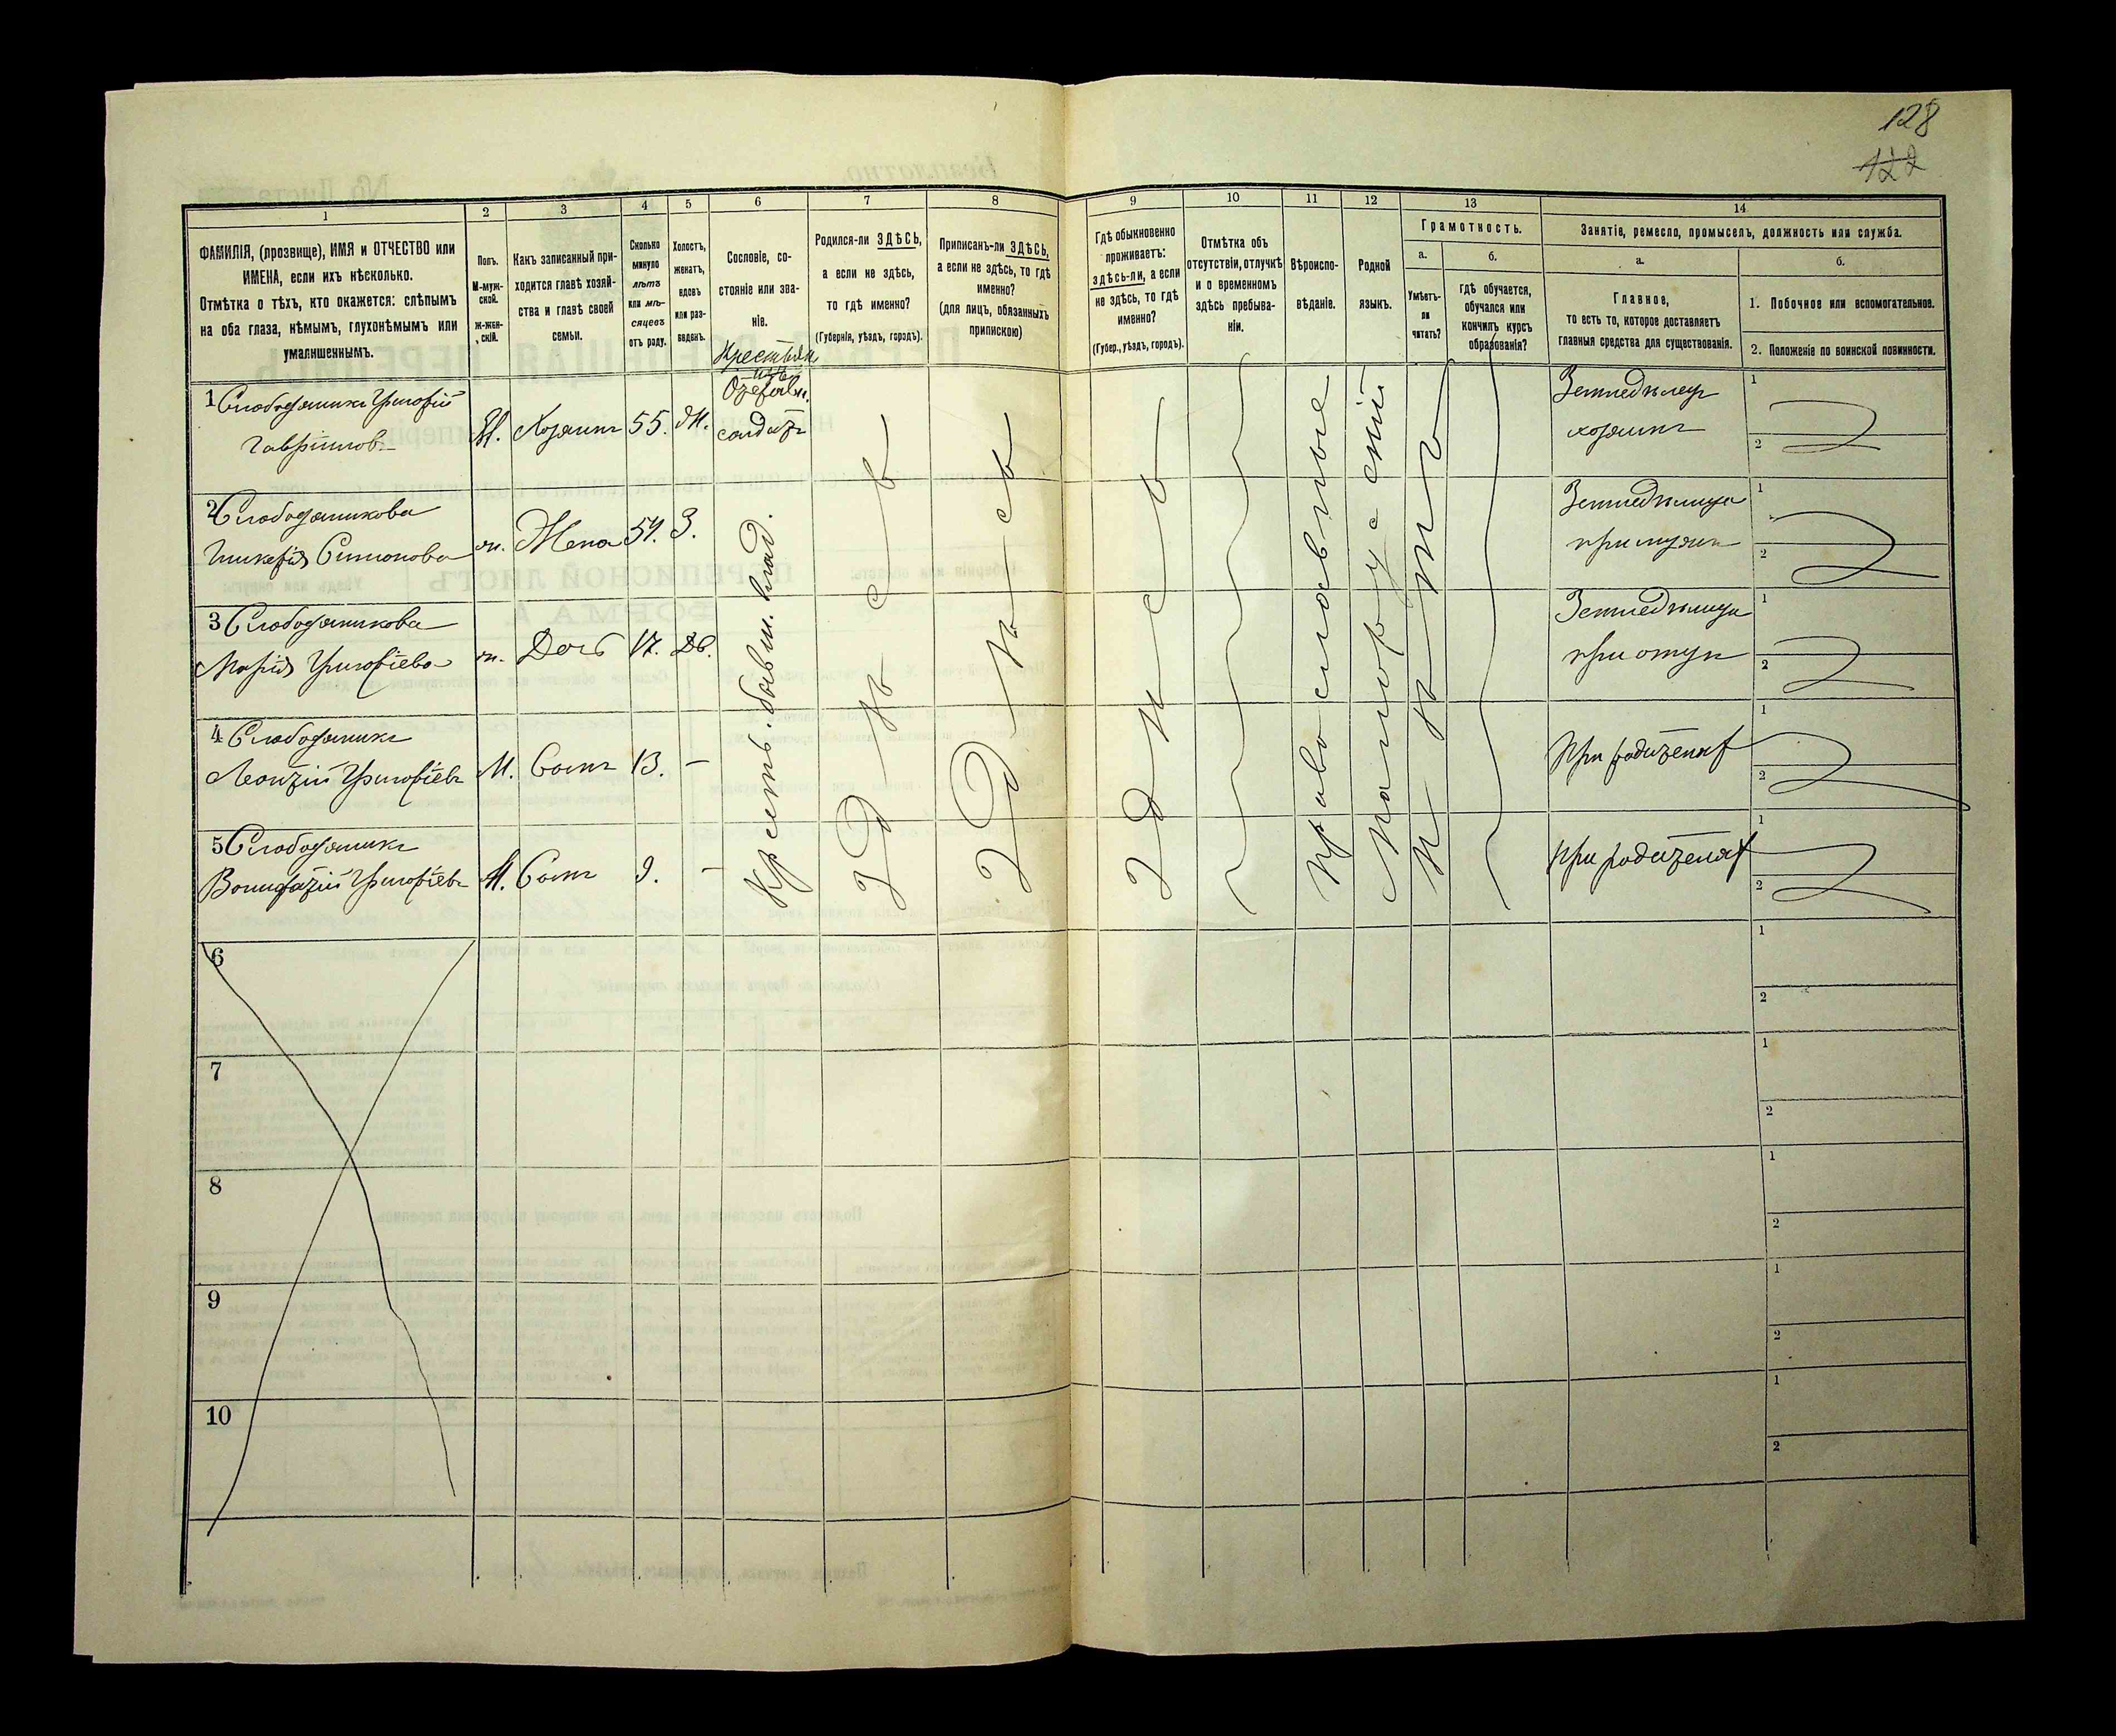 128
122
1
2
3
4
5
6
7
8
9
10
11
12
13
14
ФАМИЛІЯ, (прозвище), ИМЯ и ОТЧЕСТВО или
ИМЕНА, если ихъ нѣсколько.
Отмѣтка о тѣхъ, кто окажется: слѣпымъ
на оба глаза, нѣмымъ, глухонѣмымъ или
умалишеннымъ.
Полъ.
М-муж-
ской.
Ж-жен-
скій.
Какъ записанный при-
ходится главѣ хозяй-
ства и главѣ своей
семьи.
Сколько
минуло
лѣтъ
или мѣ-
сяцевъ
отъ роду.
Холостъ,
женатъ,
вдовъ
или раз-
веденъ.
Сословіе, со-
стояніе или зва-
ніе.
Родился-ли ЗДѢСЬ,
а если не здѣсь,
то гдѣ именно?
(Губернія, уѣздъ, городъ).
Приписанъ-ли ЗДѢСЬ,
а если не здѣсь, то гдѣ
именно?
(для лицъ, обязанныхъ
припискою)
Гдѣ обыкновенно
проживаетъ:
здѣсь-ли, а если
не здѣсь, то гдѣ
именно?
(Губер., уѣздъ, городъ).
Отмѣтка объ
отсутствіи, отлучкѣ
и о временномъ
здѣсь пребыва-
ніи.
Вѣроиспо-
вѣданіе.
Родной
языкъ.
Грамотность.
а.
Умѣетъ-
ли
читать?
б.
Гдѣ обучается,
обучался или
кончилъ курсъ
образованія?
Занятіе, ремесло, промыселъ, должность или служба.
а.
Главное,
то есть то, которое доставляетъ
главныя средства для существованія.
б.
1. Побочное или вспомогательное.
2. Положеніе по воинской повинности.
1 Слободяникъ Григорій
Гавріиловъ
М.
Хозяинъ
55.
Ж.
солдатъ
Земледѣлецъ
хозяинъ
1
2
2 Слободяникова
Гликерія Симонова
ж.
Жена
54.
З.
Земледѣлица
при мужѣ
1
2
3 Слободяникова
Марія Григоріева
ж.
Дочь
17.
Дв.
Земледѣлица
при отцѣ
1
2
4 Слободяникъ
Леонтій Григоріевъ
М.
Сынъ
13.
-
При родителяхъ
1
2
5 Слободяникъ
Вонифатій Григоріевъ
М.
Сынъ
9.
-
При родителяхъ
1
2
Крестьян. бывш. влад.
Здѣсь
Здѣсь
Здѣсь
Православные
Малорусскій
Нѣтъ
6
1
2
7
1
2
8
1
2
9
1
2
10
1
2